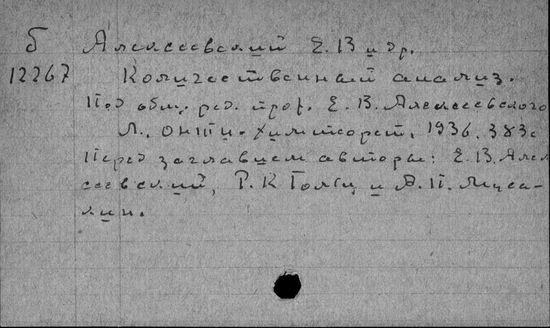 Б Алексеевский Е. В и др.
12267 Количественный анализ.
Под общ. ред. проф. Е. В. Алексеевского
Л., ОНТИ-Химтеорет, 1936. 383с
Перед заглавием авторы: Е. В. Алек
сеевский, Р. К Гольц и А. П. Муса-
кин.